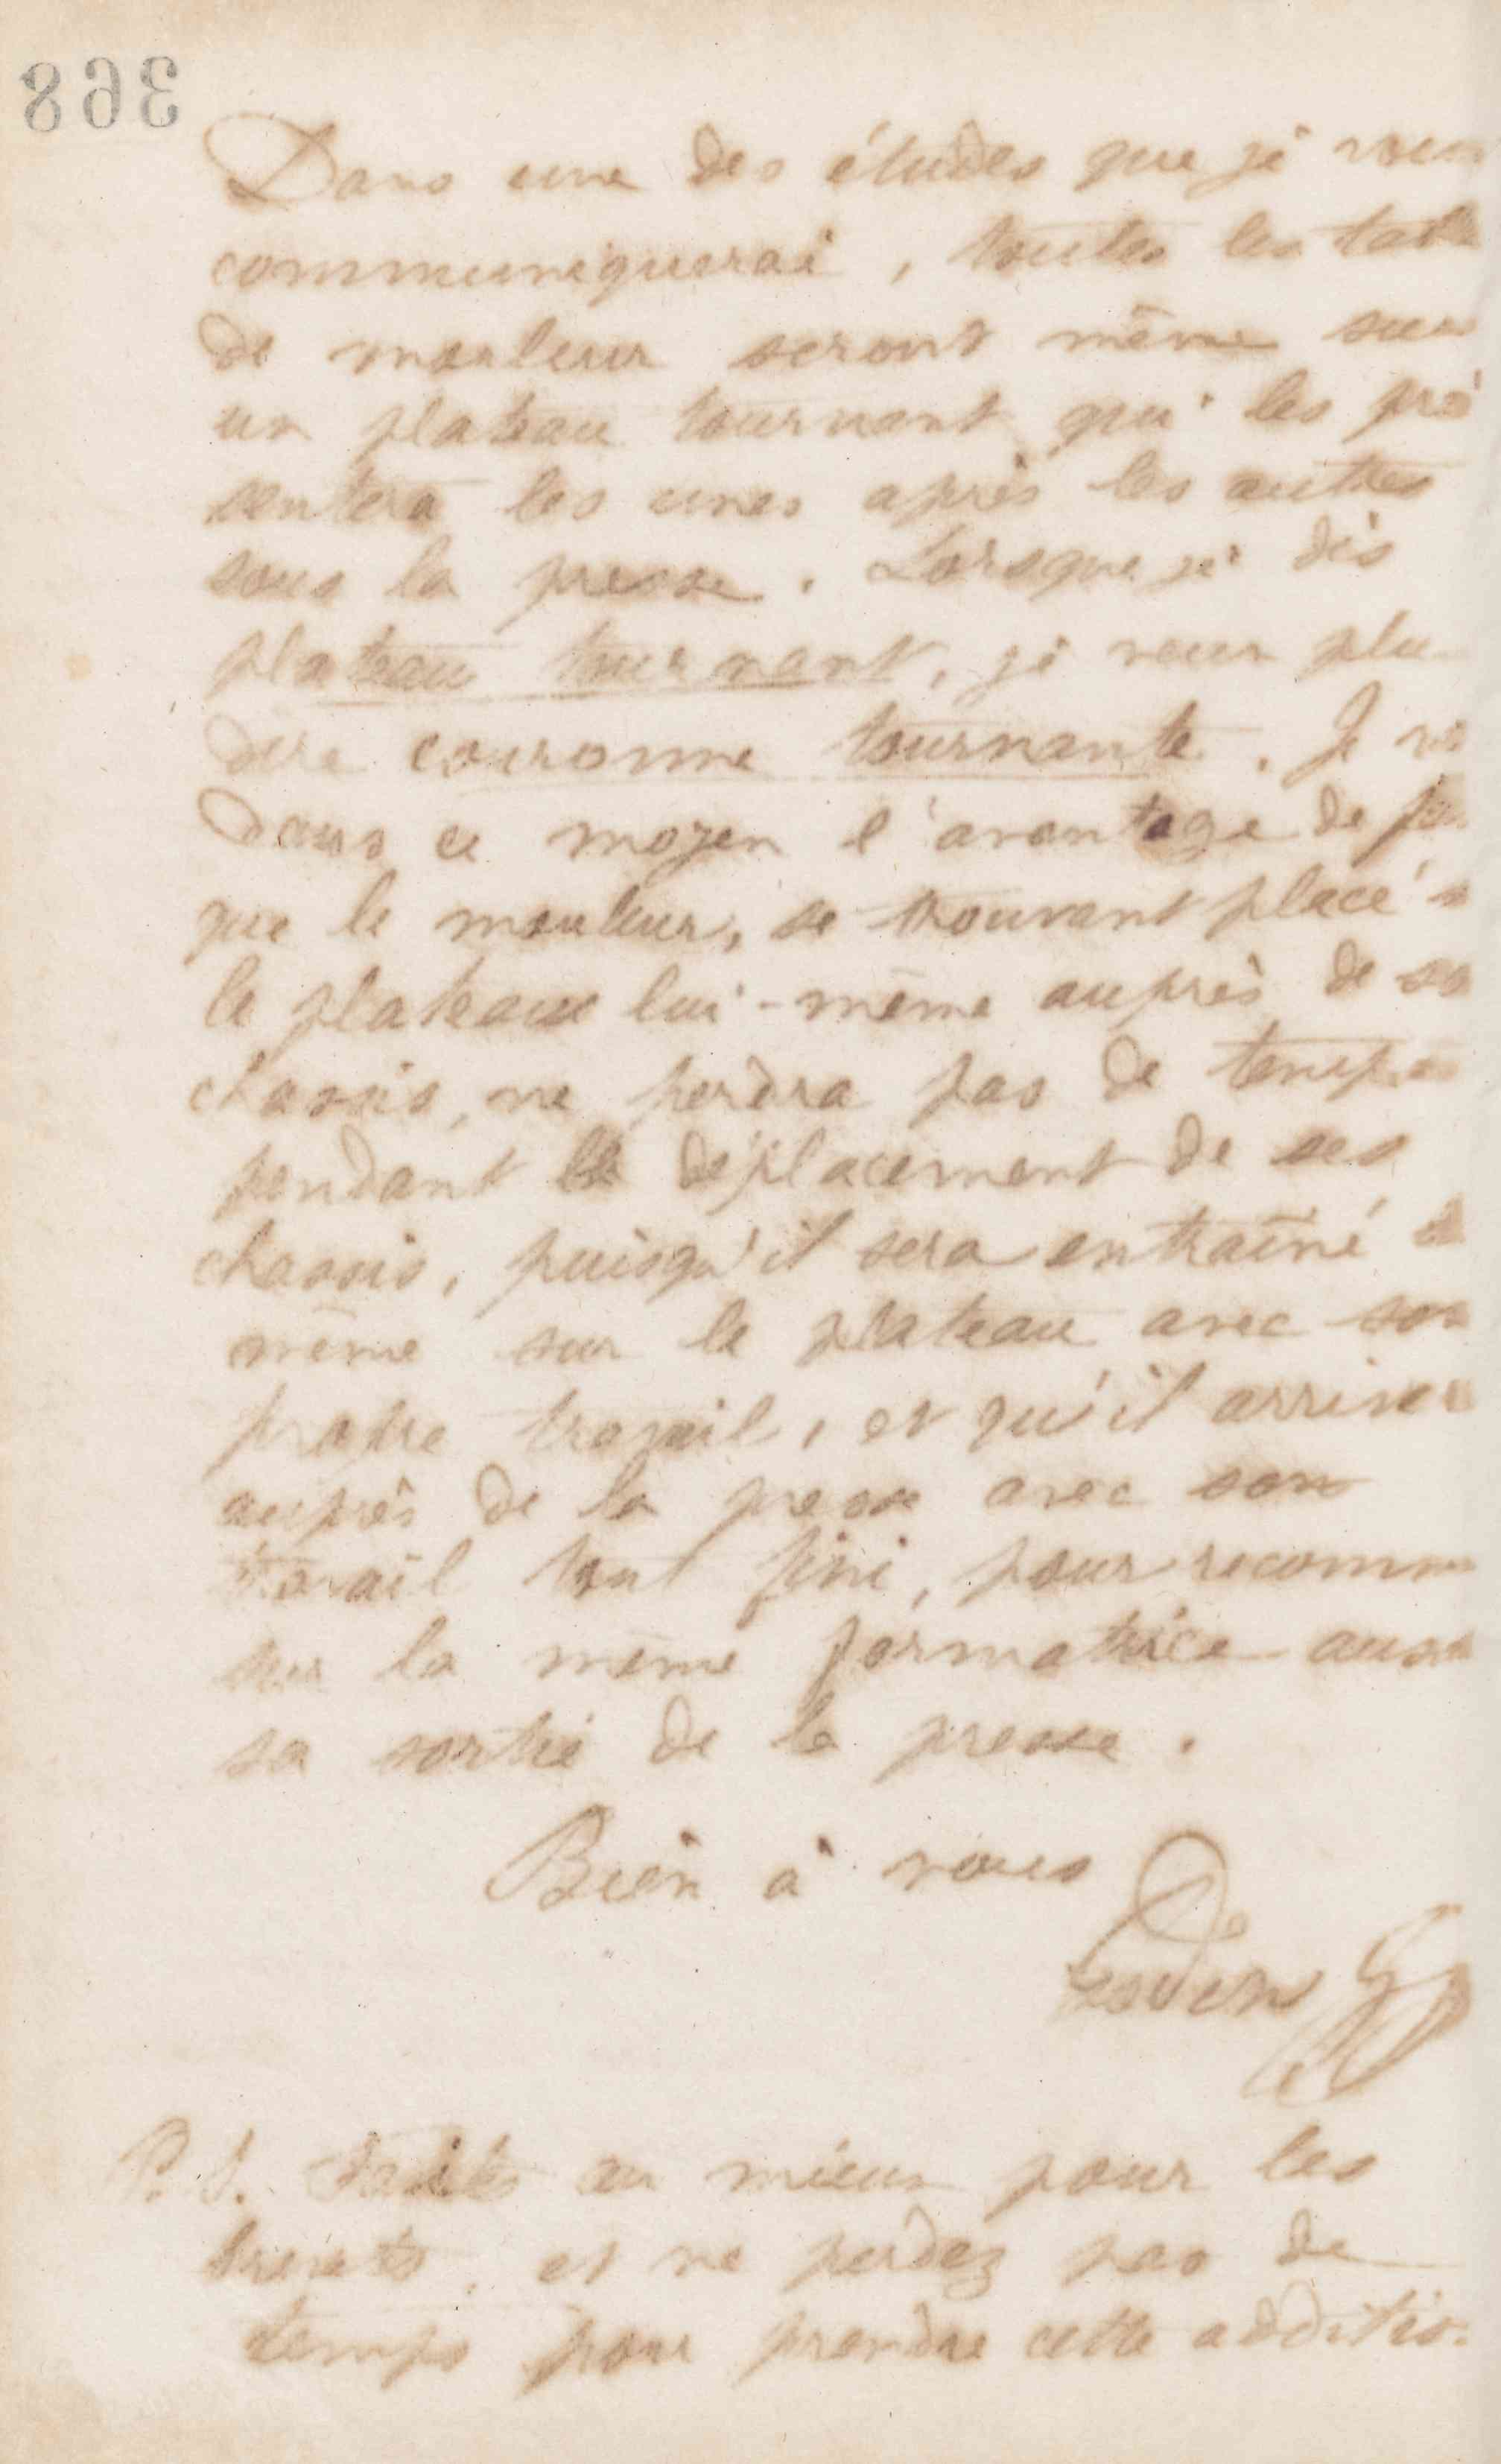 368
Dans une des études que je vous
communiquerai, toutes les tabl
de mouleur seront même sur
un plateau tournant qui les pré
sentera les unes après les autres
sous la presse. Lorsque je dis
plateau tournant, je veux plu
dire couronne tournante. Je vo
dans ce moyen l'avantage de
que le mouleur, se trouvant placé s
le plateau lui-même auprès de so
chassis, ne perdra pas de temps
pendant le déplacement de ses
chassis, puisqu'il sera entraîné
même sur le plateau avec son
propre travail, et qu'il arriver
auprès de la presse avec son
travail tout fini, pour recomm
sur la même formatrice auss
sa sortie de la presse.
Bien à vous
Godin
P.S. Faites au mieux pour les
brevets, et ne perdez pas de
temps pour prendre cette additio